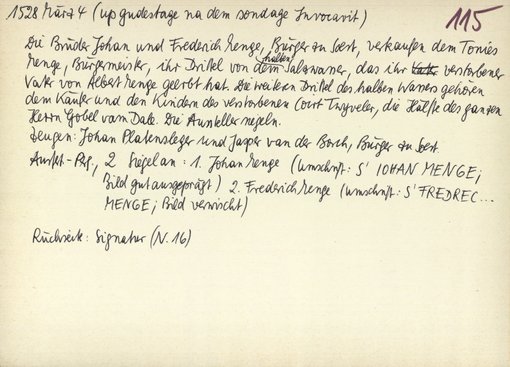 1528 März 4 (up gudestage na dem sondage Invocavit)
115
Die Brüder Johan und Frederich Menge, Bürger zu Soest, verkaufen dem Tonies
Menge, Bürgermeister, ihr Drittel von dem halben Salzwasser, das ihr Vater verstorbener
Vater von Albert Menge geerbt hat. Die weiteren Drittel des halben Wassers gehören
dem Käufer und den Kindern des verstorbenen Court Twyveler, die Hälfte des ganzen
Herrn Gobel vam Dale. Die Aussteller siegeln.
Zeugen: Johan Platensleger und Jasper van der Borch, Bürger zu Soest.
Ausf.-Perg., 2 Siegel an: 1. Johan Menge (Umschrift: S' IOHAN MENGE;
Bild gut ausgeprägt) 2. Frederich Menge (Umschrift: S' FREDREC...
MENGE; Bild verwischt)
Rückseite: Signatur (N. 16)